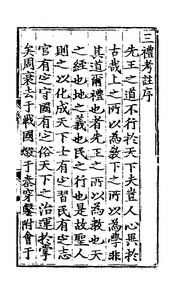 三禮考註序
先王之道不行於天下夫豈人心異於
古哉上之所以為教下之所以為學非
其道爾禮也者先王之所以為教也天
之經也地之義也民之行也是故聖人
則之以化成天下士有定習民有定志
官有定守國有定俗天下之治運於掌
矣周衰去于戰國燬于秦穿鑿附會于